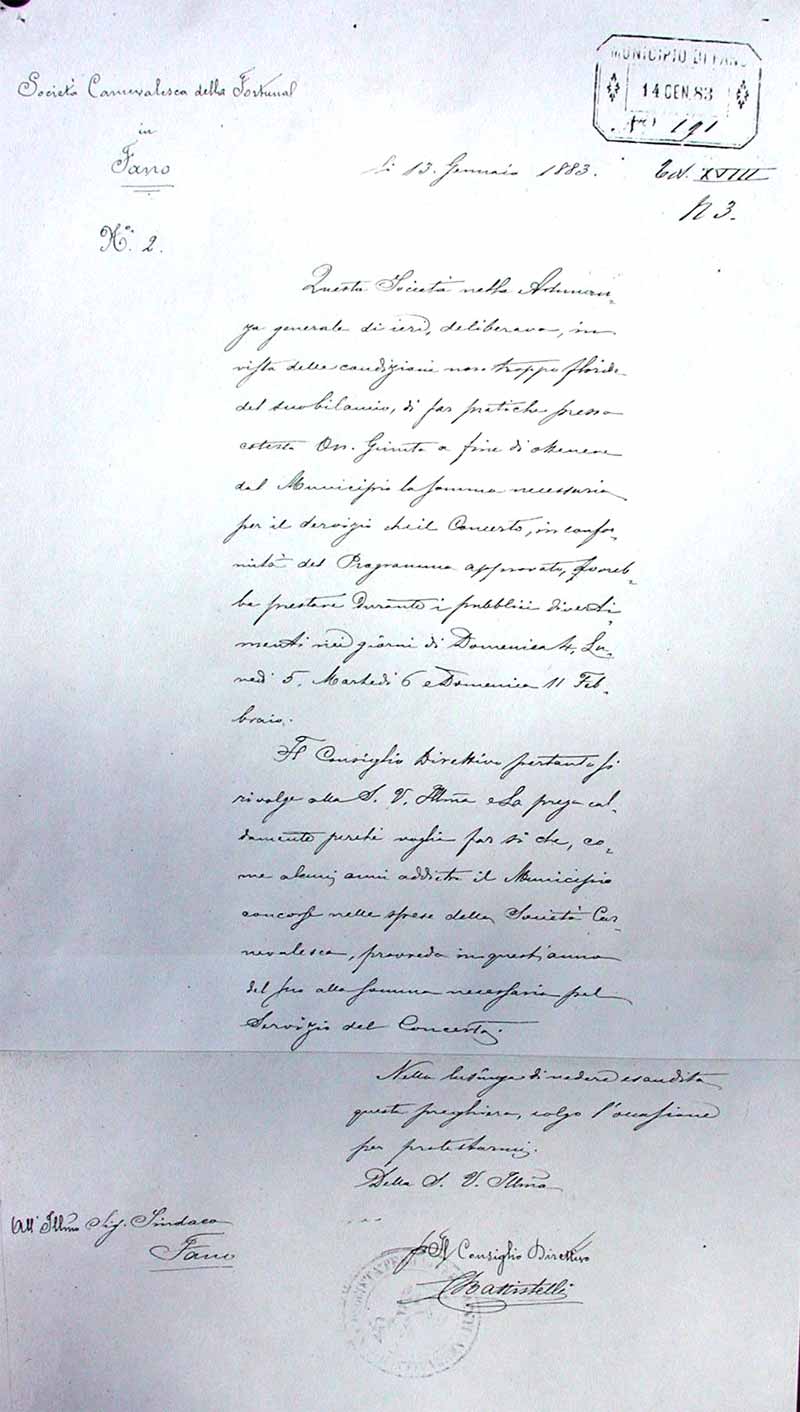 Società Carnevalesca della Fortuna
in
Fano
N.º 2.
MUNICIPIO DI FANO
14 GEN. 83
Nº 191
Li 13. Gennaio 1883.
Tit. XVIII
N 3.
Questa Società nella Adunan-
za generale di ieri, deliberava, in
vista delle condizioni non troppo floride
del suo bilancio, di far pratiche presso
cotesta On. Giunta a fine di ottenere
dal Municipio la somma necessaria
per il servizio che il Concerto, in confor-
mità del Programma approvato, dovreb-
be prestare durante i pubblici diverti-
menti nei giorni di Domenica 4, Lu-
nedì 5, Martedì 6 e Domenica 11 Feb-
braio.
Il Consiglio Direttivo pertanto si
rivolge alla S. V. Illma e La prega cal-
damente perché voglia far sì che, co-
me alcuni anni addietro il Municipio
concorse nelle spese della Società Car-
nevalesca, provveda in quest'anno
del suo alla somma necessaria pel
Servizio del Concerto.
Nella lusinga di vedere esaudita
questa preghiera, colgo l'occasione
per protestarmi.
Della S. V. Illma
All' Illmo Sig. Sindaco
Fano
p. Il Consiglio Direttivo
Battistelli